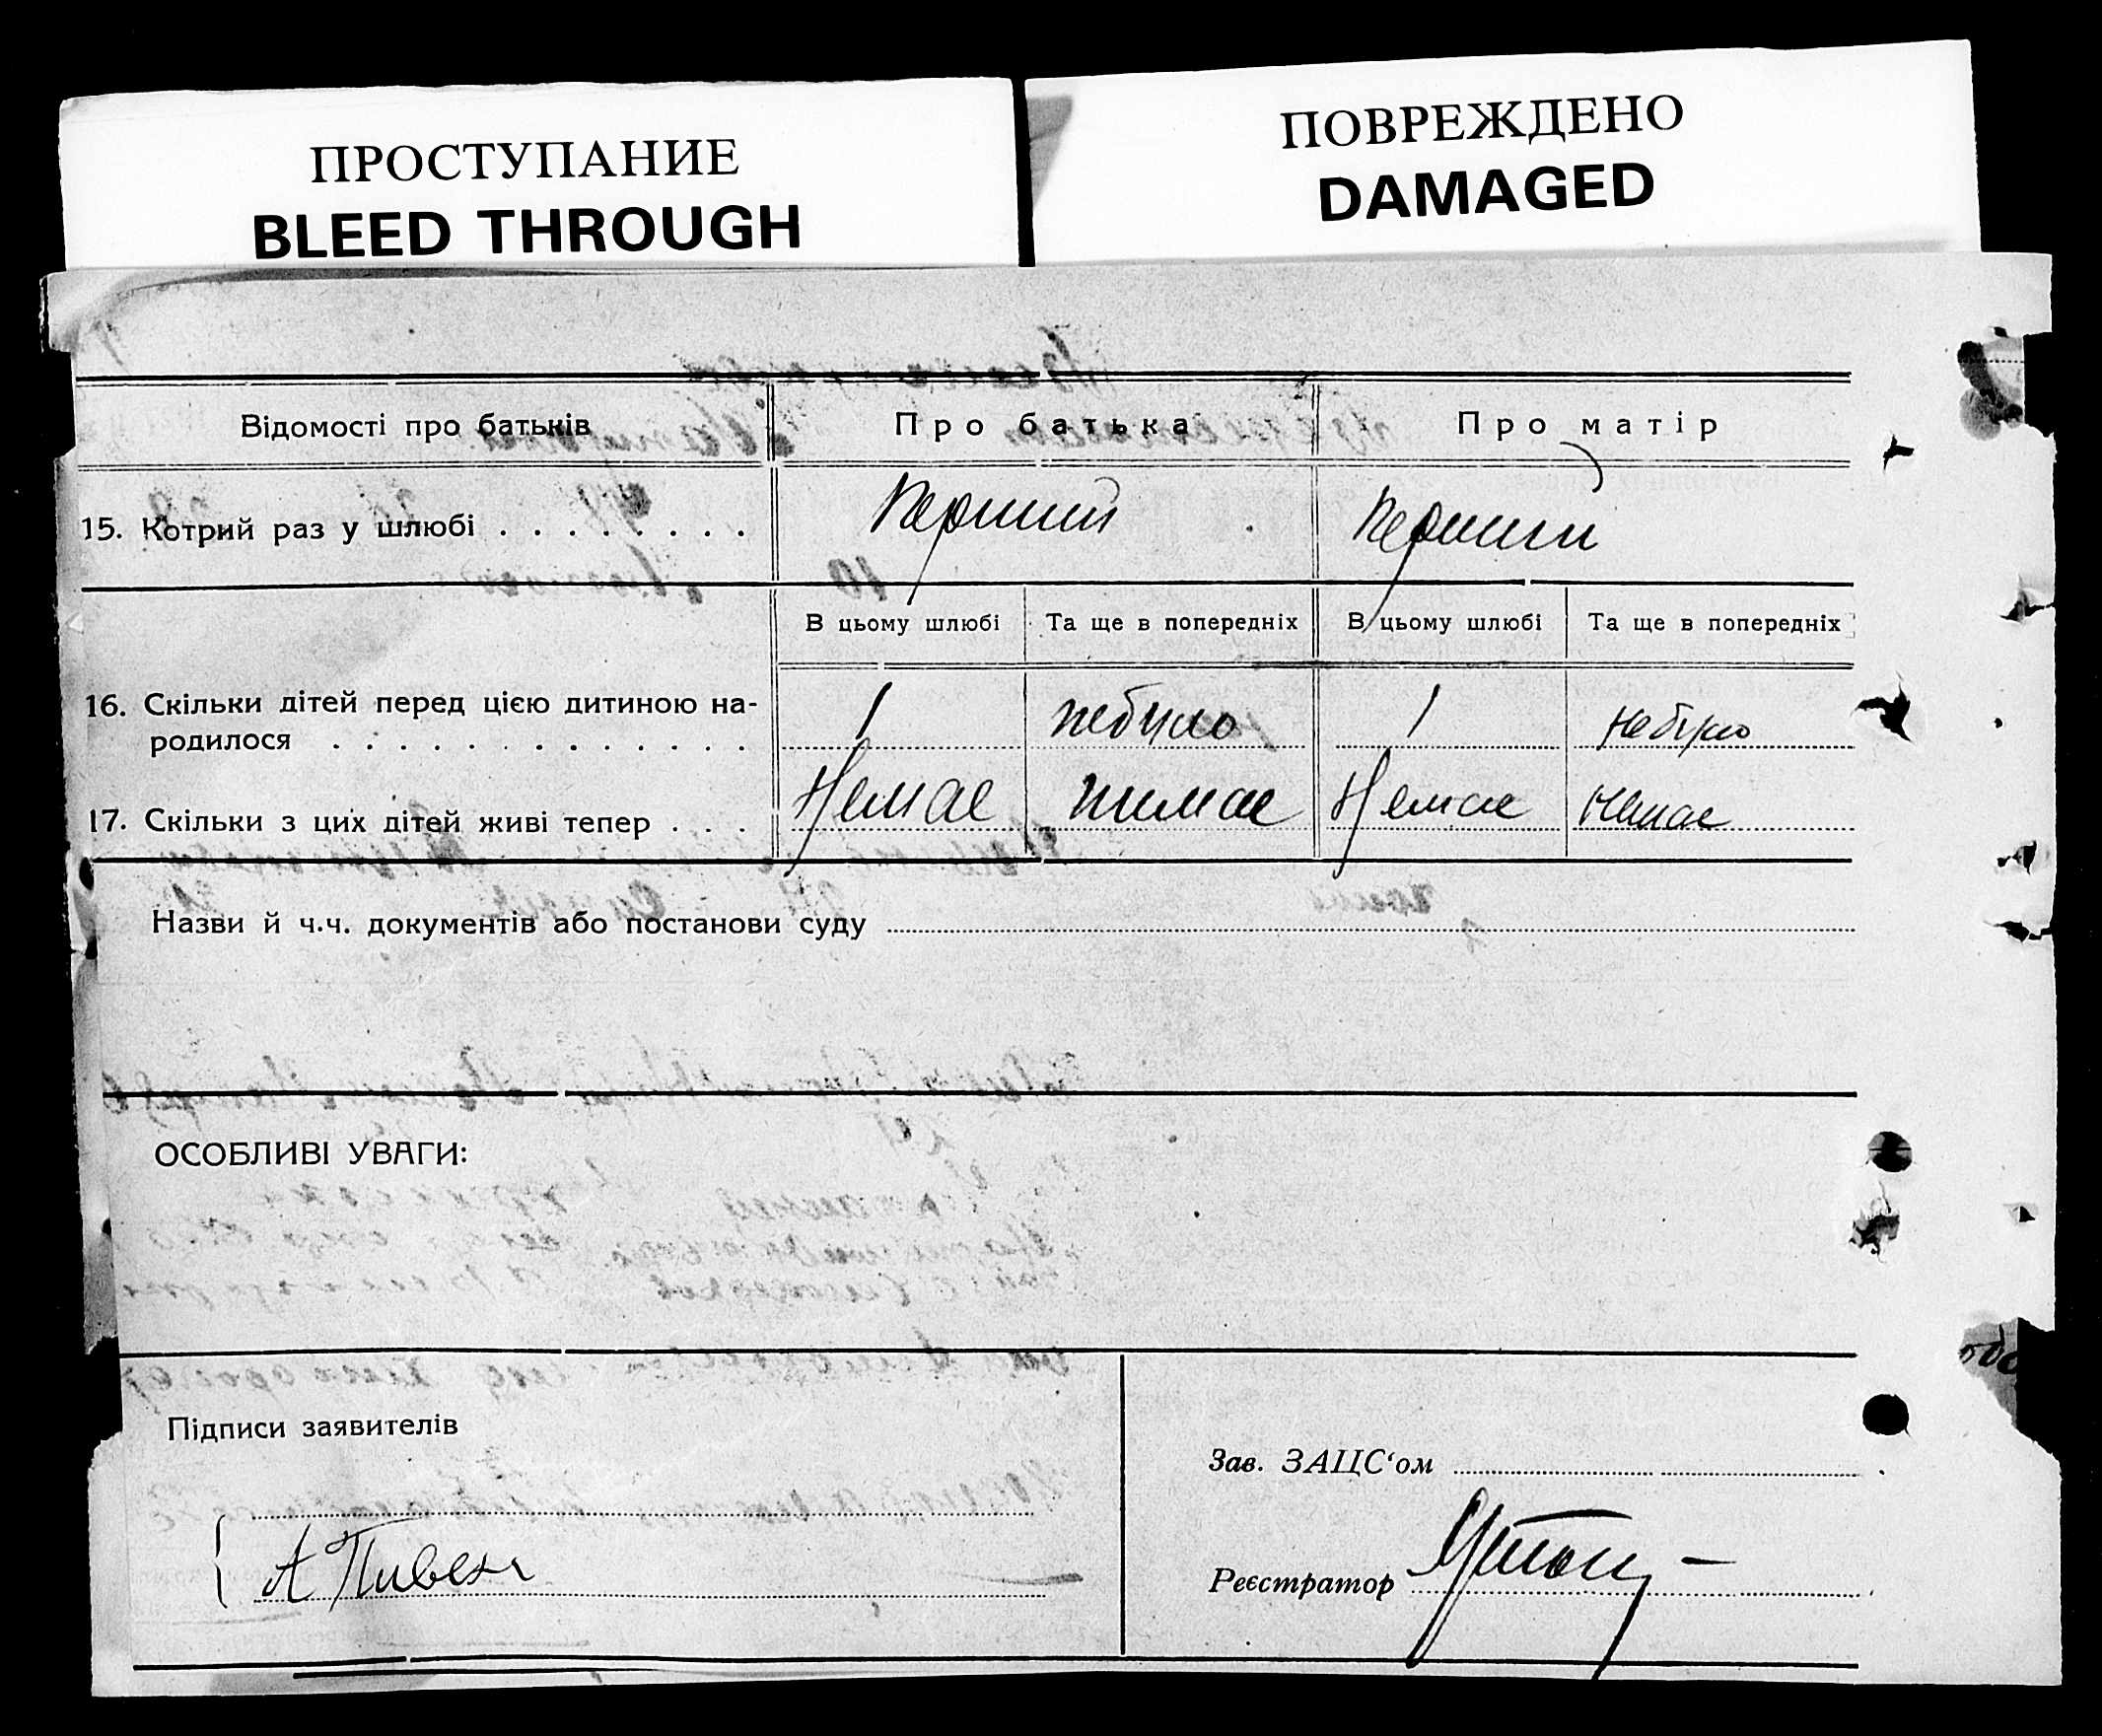 ПРОСТУПАНИЕ
BLEED THROUGH
ПОВРЕЖДЕНО
DAMAGED
Відомості про батьків Про батька Про матір
15. Котрий раз у шлюбі . . . . . . . . Перший Перший
В цьому шлюбі Та ще в попередніх В цьому шлюбі Та ще в попередніх
16. Скільки дітей перед цією дитиною на-
родилося . . . . . . . . . . . . . 1 небуло 1 небуло
17. Скільки з цих дітей живі тепер . . . Немає нимає Немає Немає
Назви й ч.ч. документів або постанови суду
ОСОБЛИВІ УВАГИ:
Підписи заявителів
А Пивень
Зав. ЗАЦС‘ом
Реєстратор